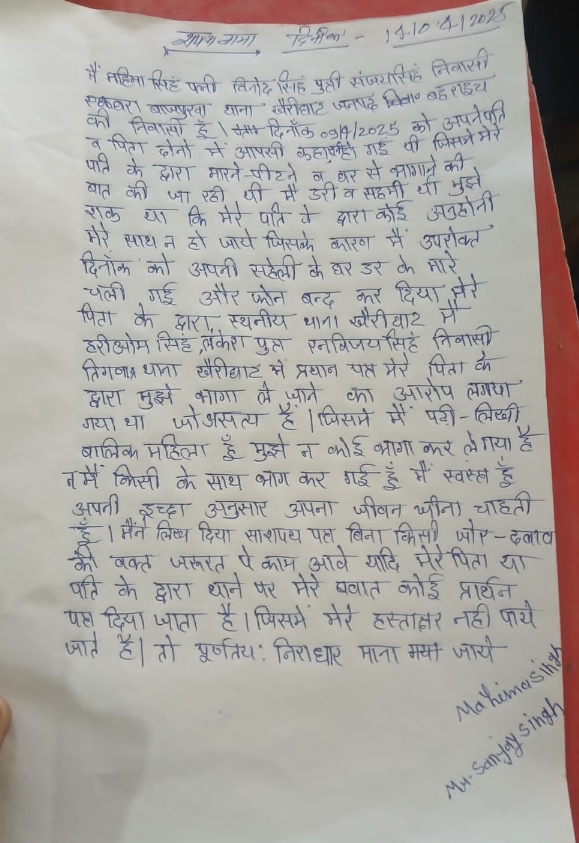 शपथनामा दिनांक - 14.10.4/2025
मैं महिमा सिंह पत्नी विनोद सिंह पुत्री संजयसिंह निवासी
थाना खैरीघाट जनपद बहराइच
की निवासी हूँ। दिनाँक 09/4/2025 को अपने पति
व पिता दोनो में आपसी कहा हो गई थी जिसमे मेरे
पति के द्वारा मारने-पीटने व घर से भागाने की
बात की जा रही थी मैं डरी व सहमी थी मुझे
शक था कि मेरे पति के द्वारा कोई अनहोनी
मेरे साथ न हो जाये जिसके कारण मैं उपरोक्त
दिनाँक को अपनी सहेली के घर डर के मारे
चली गई और फोन बन्द कर दिया मेरे
पिता के द्वारा स्थनीय थाना खैरीघाट में
हरीओम सिंह पुत्र रनविजय सिंह निवासी
थाना खैरीघाट में प्रथान पत्र मेरे पिता के
द्वारा मुझे भागा ले जाने का आरोप लगया
गया था जो असत्य है। जिसमे मैं पढ़ी-लिखी
बालिक महिला हूँ मुझे न कोई भागा कर ले गया है
न मैं किसी के साथ भाग कर गई हूँ मैं स्वस्थ हूँ
अपनी इच्छा अनुसार अपना जीवन जीना चाहती
हूँ। मैने लिख दिया साशपथ पत्र बिना किसी जोर-दबाव
की वक्त जरूरत पे काम आवे यदि मेरे पिता या
पति के द्वारा थाने पर मेरे बवात कोई प्रार्थन
पत्र दिया जाता है। जिसमें मेरे हस्ताक्षर नही पाये
जाते है। तो पूर्णतय: निराधार माना जाये
Mahima singh
Mr. Sanjay singh